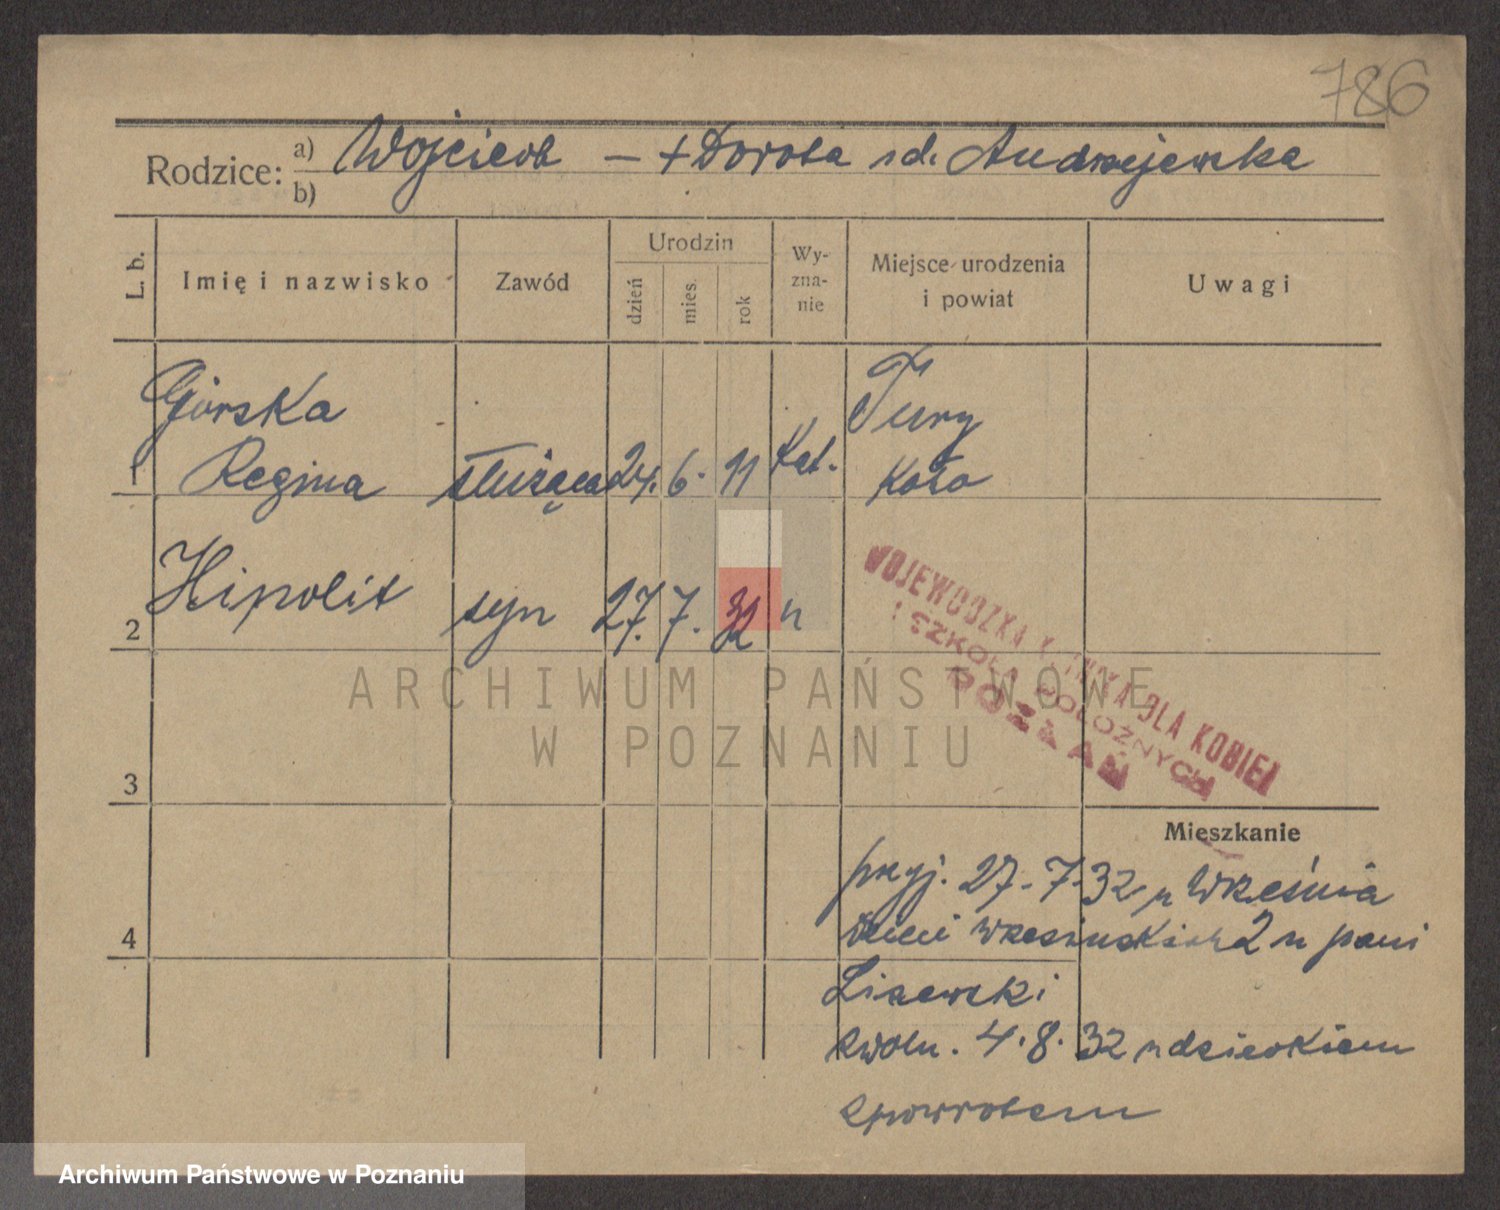 786
Rodzice: a) Wojciech — + Dorota zd. Andrzejewska
b)
L. b.
Imię i nazwisko
Zawód
Urodzin
dzień
mies.
rok
Wy-
zna-
nie
Miejsce urodzenia
i powiat
Uwagi
Górska
Regina
1
służąca
24. 6. 11
Kat.
Tury
Koło
2
Hipolit
syn
27. 7. 32
"
WOJEWÓDZKA KLINIKA DLA KOBIET
I SZKOŁA POŁOŻNYCH
POZNAŃ
3
4
Mieszkanie
przyj. 27-7-32 z Września
Dzieci Wrzesińskich 2 u pani
zwoln. 4.8.32 z dzieckiem
zpowrotem
ARCHIWUM PAŃSTWOWE
W POZNANIU
Archiwum Państwowe w Poznaniu